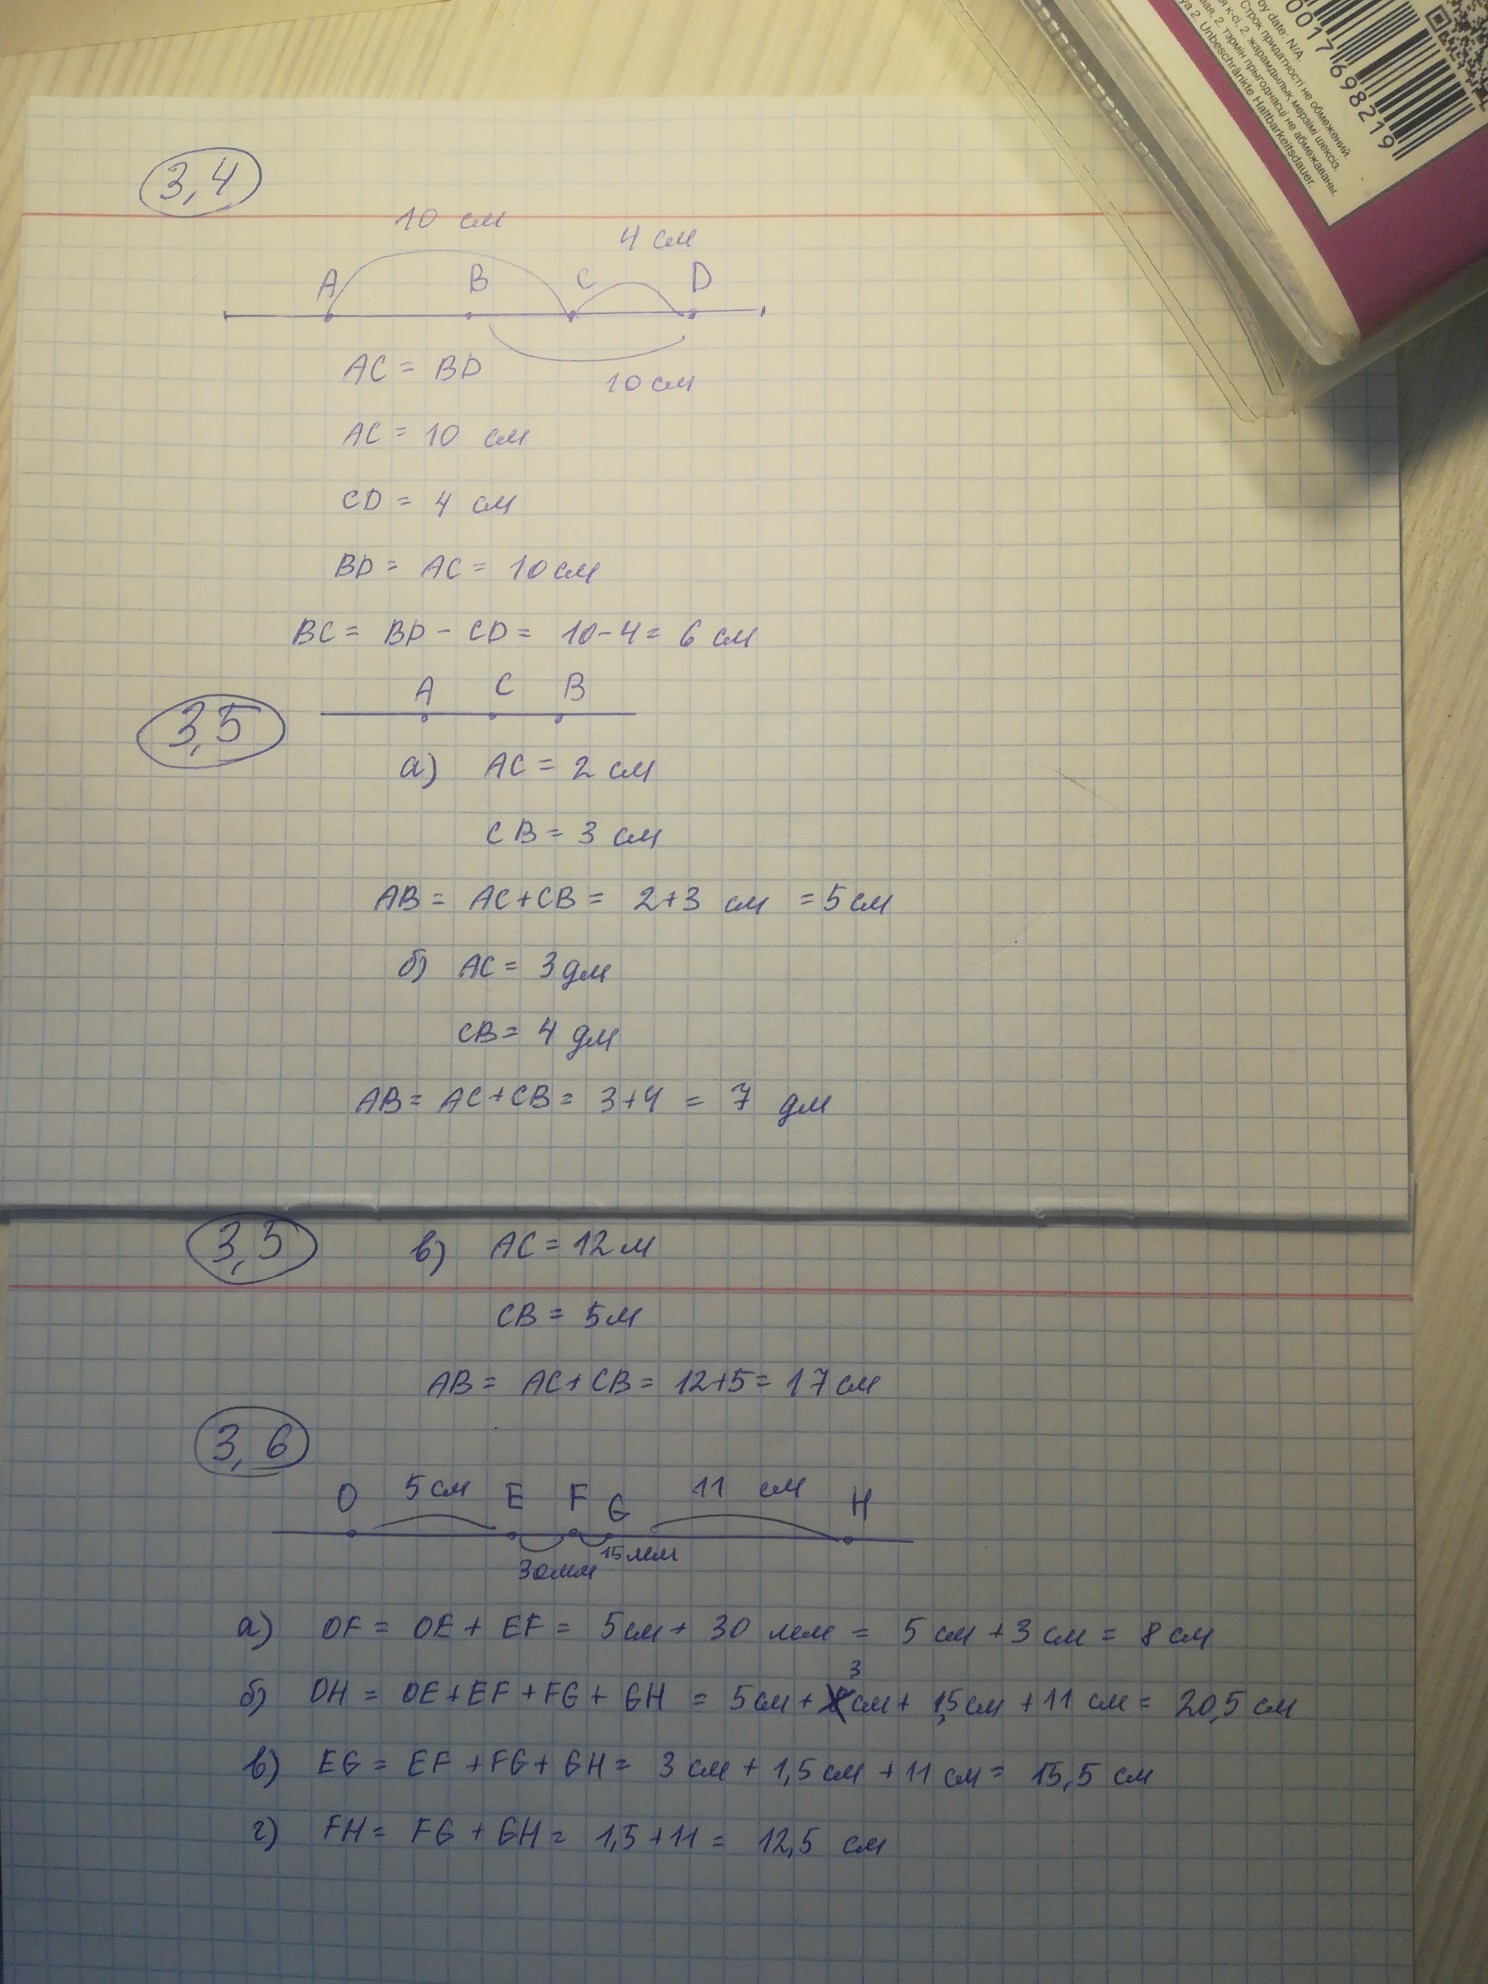 by date. N/A.
Строк придатності не обмежений.
я к-сі, 2. жарамдылық мерзімі шексіз.
2. тэрмін прыгоднасці не абмежаваны.
2. Unbeschränkte Haltbarkeitsdauer.
0017698219
3,4
10 см
4 см
A B C D
AC = BD
10 см
AC = 10 см
CD = 4 см
BD = AC = 10 см
BC = BD - CD = 10-4 = 6 см
A C B
3,5
а) AC = 2 см
CB = 3 см
AB = AC+CB = 2+3 см = 5 см
б) AC = 3 дм
CB = 4 дм
AB = AC+CB = 3+4 = 7 дм
3,5 в) AC = 12 м
CB = 5 м
AB = AC+CB = 12+5 = 17 см
3,6
O 5 см E F G 11 см H
30 мм 15 мм
а) OF = OE + EF = 5 см + 30 мм = 5 см + 3 см = 8 см
б) OH = OE+EF+FG+GH = 5 см + 3 см + 1,5 см + 11 см = 20,5 см
в) EG = EF+FG+GH = 3 см + 1,5 см + 11 см = 15,5 см
г) FH = FG + GH = 1,5+11 = 12,5 см